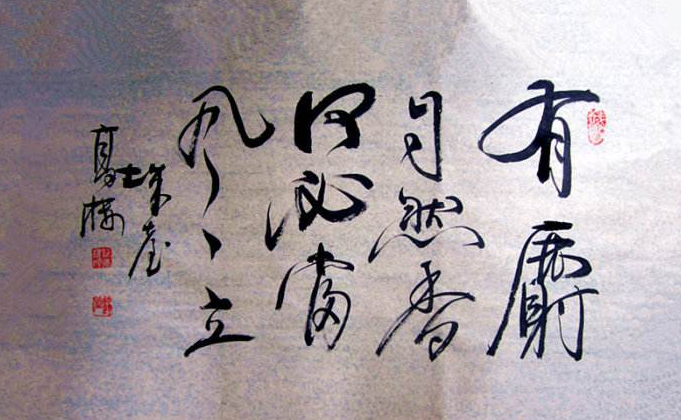 有麝
自然香
何必當
風立